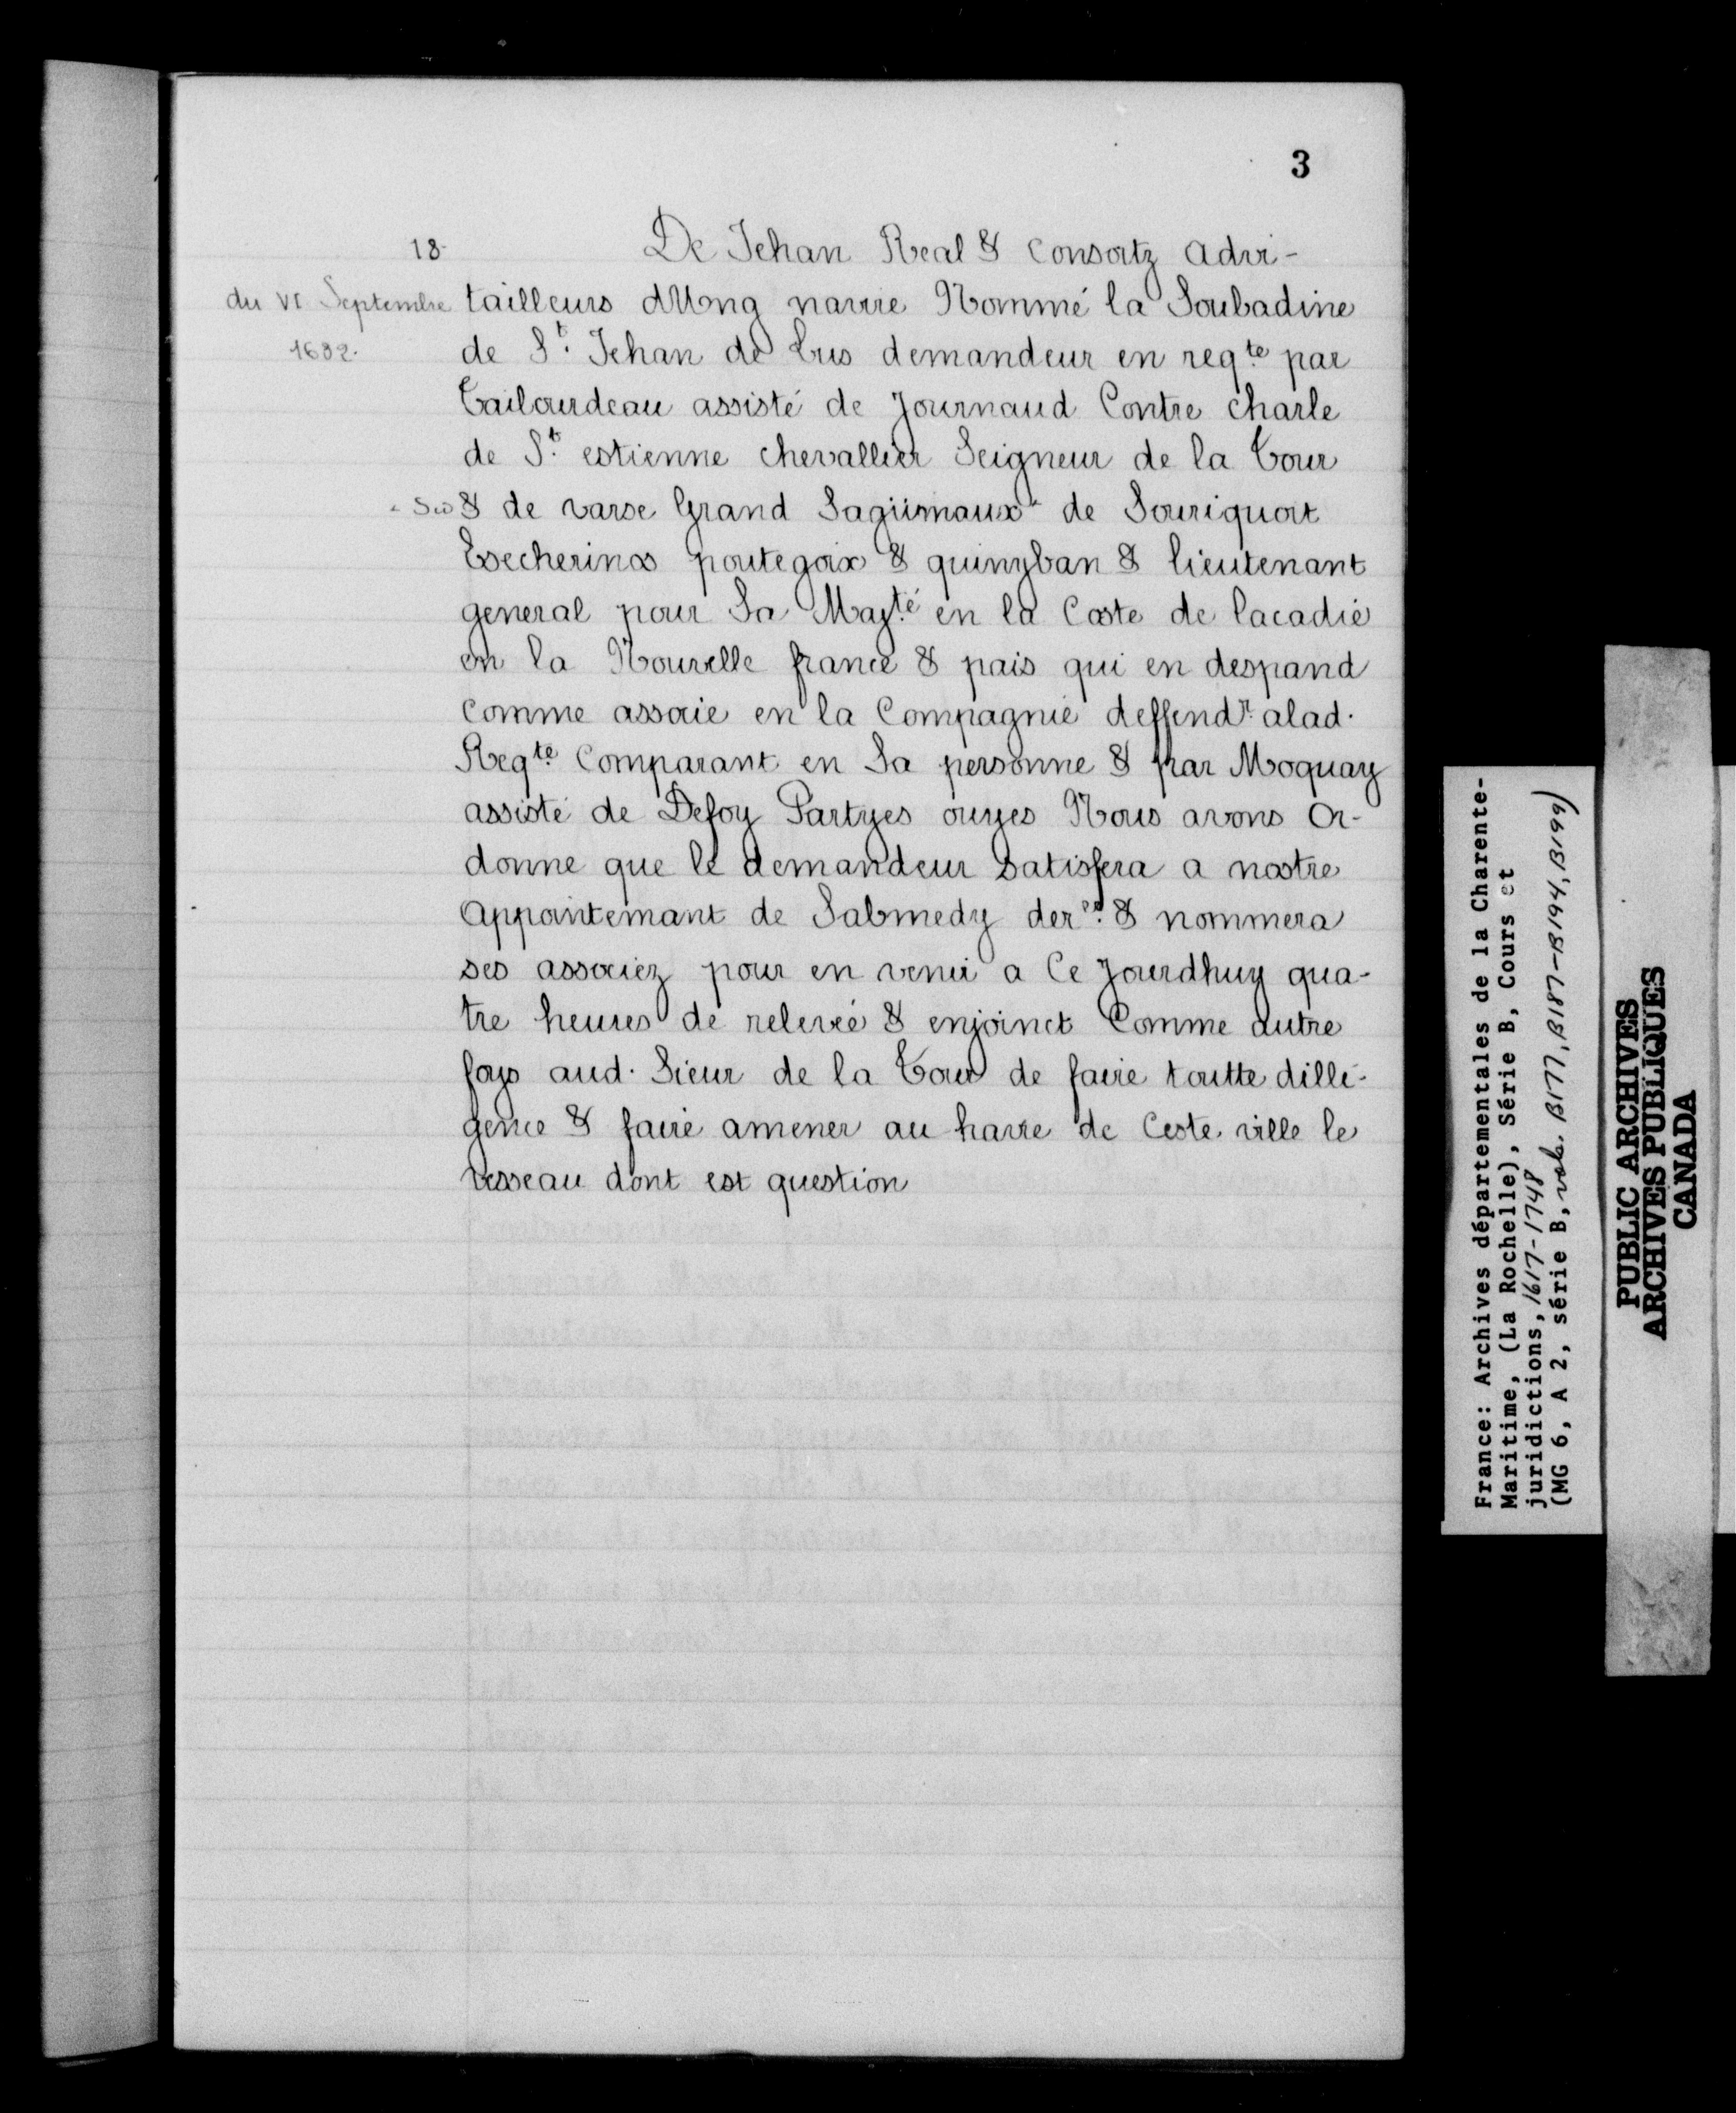 3
18
De Jehan Real & Consortz advi-
du VI Septembre tailleurs dUng navire Nommé la Soubadine
1632. de St. Jehan de Lus demandeur en reqte par
Tailourdeau assisté de Journaud Contre charle
de St. estienne chevallier Seigneur de la Tour
* Sic & de varse Grand Sagüimaux* de Souriquoit
Esecherinos poutegoix & quinyban & lieutenant
general pour Sa Majté en la Coste de lacadie
en la Nouvelle france & pais qui en despand
comme associe en la Compagnie deffendr. alad.
Reqte Comparant en Sa personne & par Moquay
assisté de Defoy Partyes ouyes Nous avons Or-
donne que le demandeur satisfera a nostre
appointemant de Sabmedy derer. & nommera
ses associez pour en venir a Ce Jourdhuy qua-
tre heures de relevée & enjoinct Comme autre
foys aud. Sieur de la Tour de faire toutte dilli-
gence & faire amener au havre de Ceste ville le
vesseau dont est question
France: Archives départementales de la Charente-
Maritime, (La Rochelle), Série B, Cours et
juridictions, 1617-1748
(MG 6, A 2, série B, vols. B177, B187-B194, B199)
PUBLIC ARCHIVES
ARCHIVES PUBLIQUES
CANADA